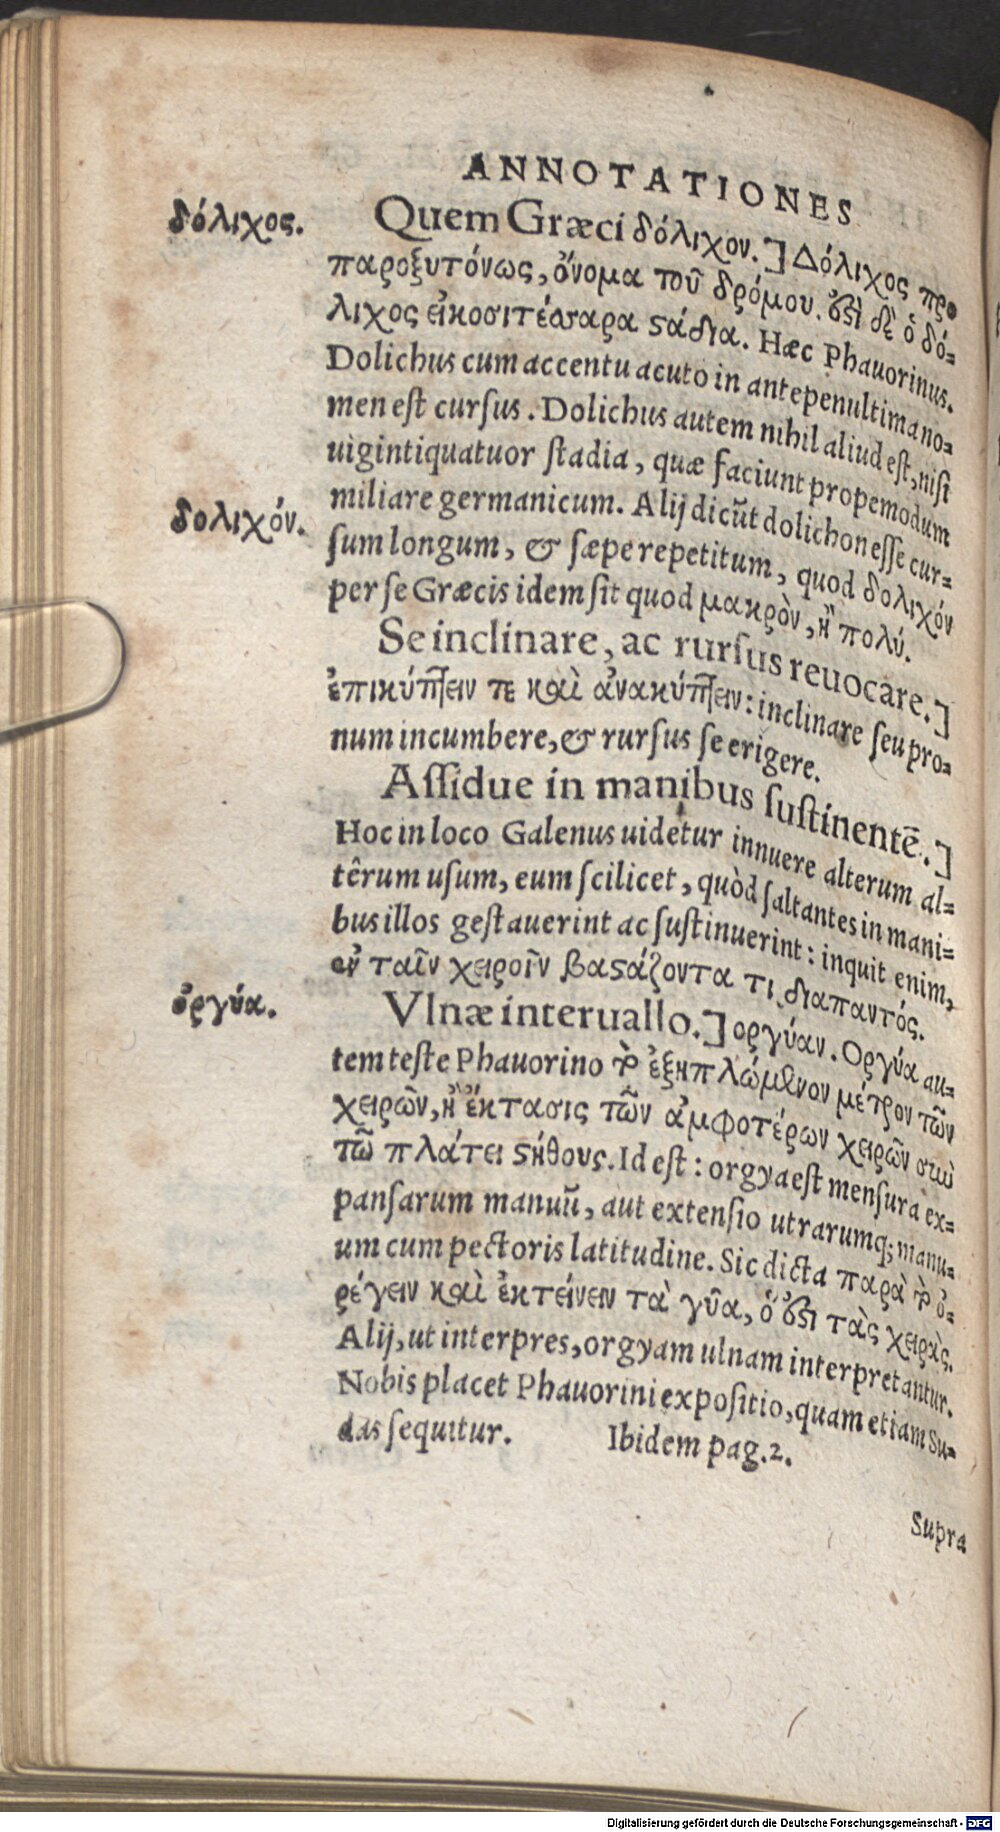 ANNOTATIONES
δόλιχος.
Quem Græci δόλιχον.] Δόλιχος προ
παροξυτόνως, ὄνομα τοῦ δρόμου. ἔστι δὲ ὁ δό-
λιχος εἰκοσιτέσσαρα στάδια. Hæc Phauorinus.
Dolichus cum accentu acuto in antepenultima no-
men est cursus. Dolichus autem nihil aliud est, nisi
uigintiquatuor stadia, quæ faciunt propemodum
miliare germanicum. Alij dicūt dolichon esse cur-
δολιχόν.
sum longum, & sæpe repetitum, quod δολιχόν
per se Græcis idem sit quod μακρὸν, ἢ πολύ.
Se inclinare, ac rursus reuocare.]
ἐπικύπτειν τε καὶ ἀνακύπτειν: inclinare seu pro-
num incumbere, & rursus se erigere.
Assidue in manibus sustinentē.]
Hoc in loco Galenus uidetur innuere alterum al-
têrum usum, eum scilicet, quòd saltantes in mani-
bus illos gestauerint ac sustinuerint: inquit enim,
ἐν ταῖν χειροῖν βαστάζοντα τι διαπαντός.
ὀργύα.
Vlnæ interuallo.] ὀργύαν. Οργύα au-
tem teste Phauorino τὸ ἐξηπλώμενον μέτρον τῶν
χειρῶν, ἢ ἔκτασις τῶν ἀμφοτέρων χειρῶν σὺν
τῶ πλάτει στήθους. Id est: orgya est mensura ex-
pansarum manuū, aut extensio utrarumq; manu-
um cum pectoris latitudine. Sic dicta παρὰ τὸ ὀ-
ρέγειν καὶ ἐκτείνειν τὰ γῦα, ὅ ἔστι τὰς χεῖρας.
Alij, ut interpres, orgyam ulnam interpretantur.
Nobis placet Phauorini expositio, quam etiam Su-
das sequitur. Ibidem pag.2.
Supra
Digitalisierung gefördert durch die Deutsche Forschungsgemeinschaft - DFG